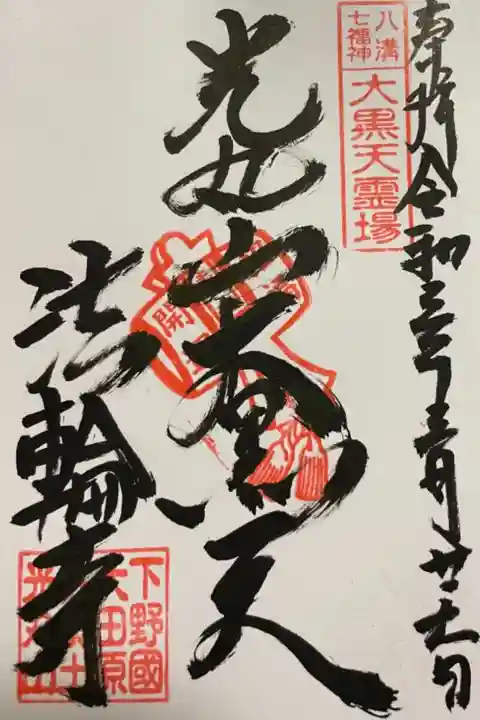 奉拝 令和三年三月廿六日
八溝
七福神
大黒天霊場
光丸山大黒天
法輪寺
下野國
大田原
光丸山